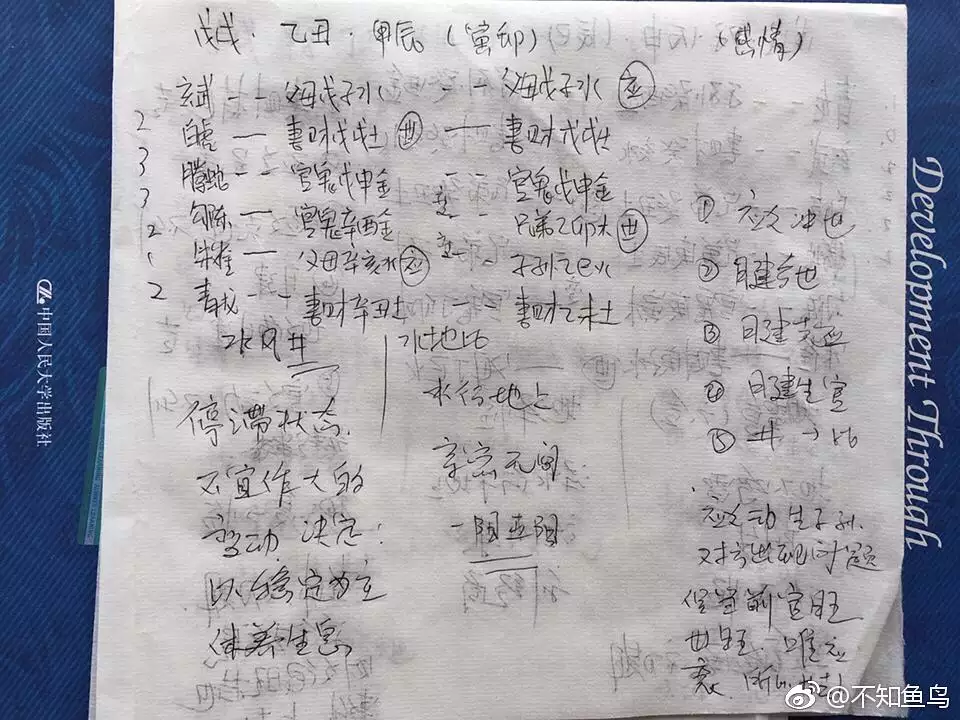 戊戌·乙丑·甲辰(寅卯) (感情)
玄武 -- 父母戊子水 -- 父母戊子水 应
2 白虎 — 妻财戊戌土 世 — 妻财戊戌土
3 腾蛇 -- 官鬼戊申金 -- 官鬼戊申金
3 勾陈 — 官鬼辛酉金 -- 兄弟乙卯木 世
2 朱雀 — 父母辛亥水 应 -- 子孙乙巳火
2 青龙 -- 妻财辛丑土 -- 妻财乙未土
水风井
水地比
停滞状态
不宜作大的
变动 决定:
以稳定为主
休养生息
水行地上
亲密无间
① 应爻冲世
② 日建合世
③ 月建克应
④ 月建生官
⑤ 井→比
应爻动生子孙.
对方出现问题
但当前官旺
世旺. 唯应
衰.
中国人民大学出版社
Development Through
@不知鱼鸟